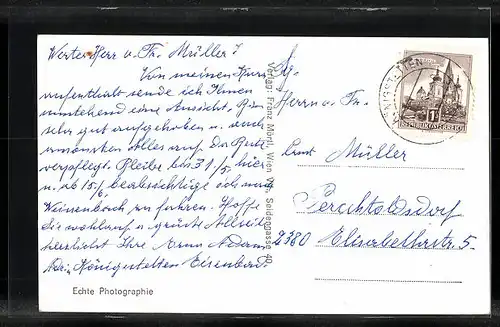 Werter Herr u. Fr. Müller!
Von meinem Kur-
aufenthalt sende ich Ihnen
umstehend eine Ansicht. Bin
sehr gut aufgehoben u. auch
ansonsten Alles auf das Beste
verpflegt. Bleibe bis 31/5. hier
u. ab 15/6. beabsichtige ich nach
Weissenbach zu fahren. Hoffe
Sie wohlauf u. grüsst Allseits
herzlichst Ihre Anna
Königstetten
Echte Photographie
Verlag: Franz Mörtl, Wien VII., Seidengasse 40
Herrn u. Fr.
Ernst Müller
Perchtoldsdorf
2380 Elisabethstr. 5.
REPUBLIK ÖSTERREICH